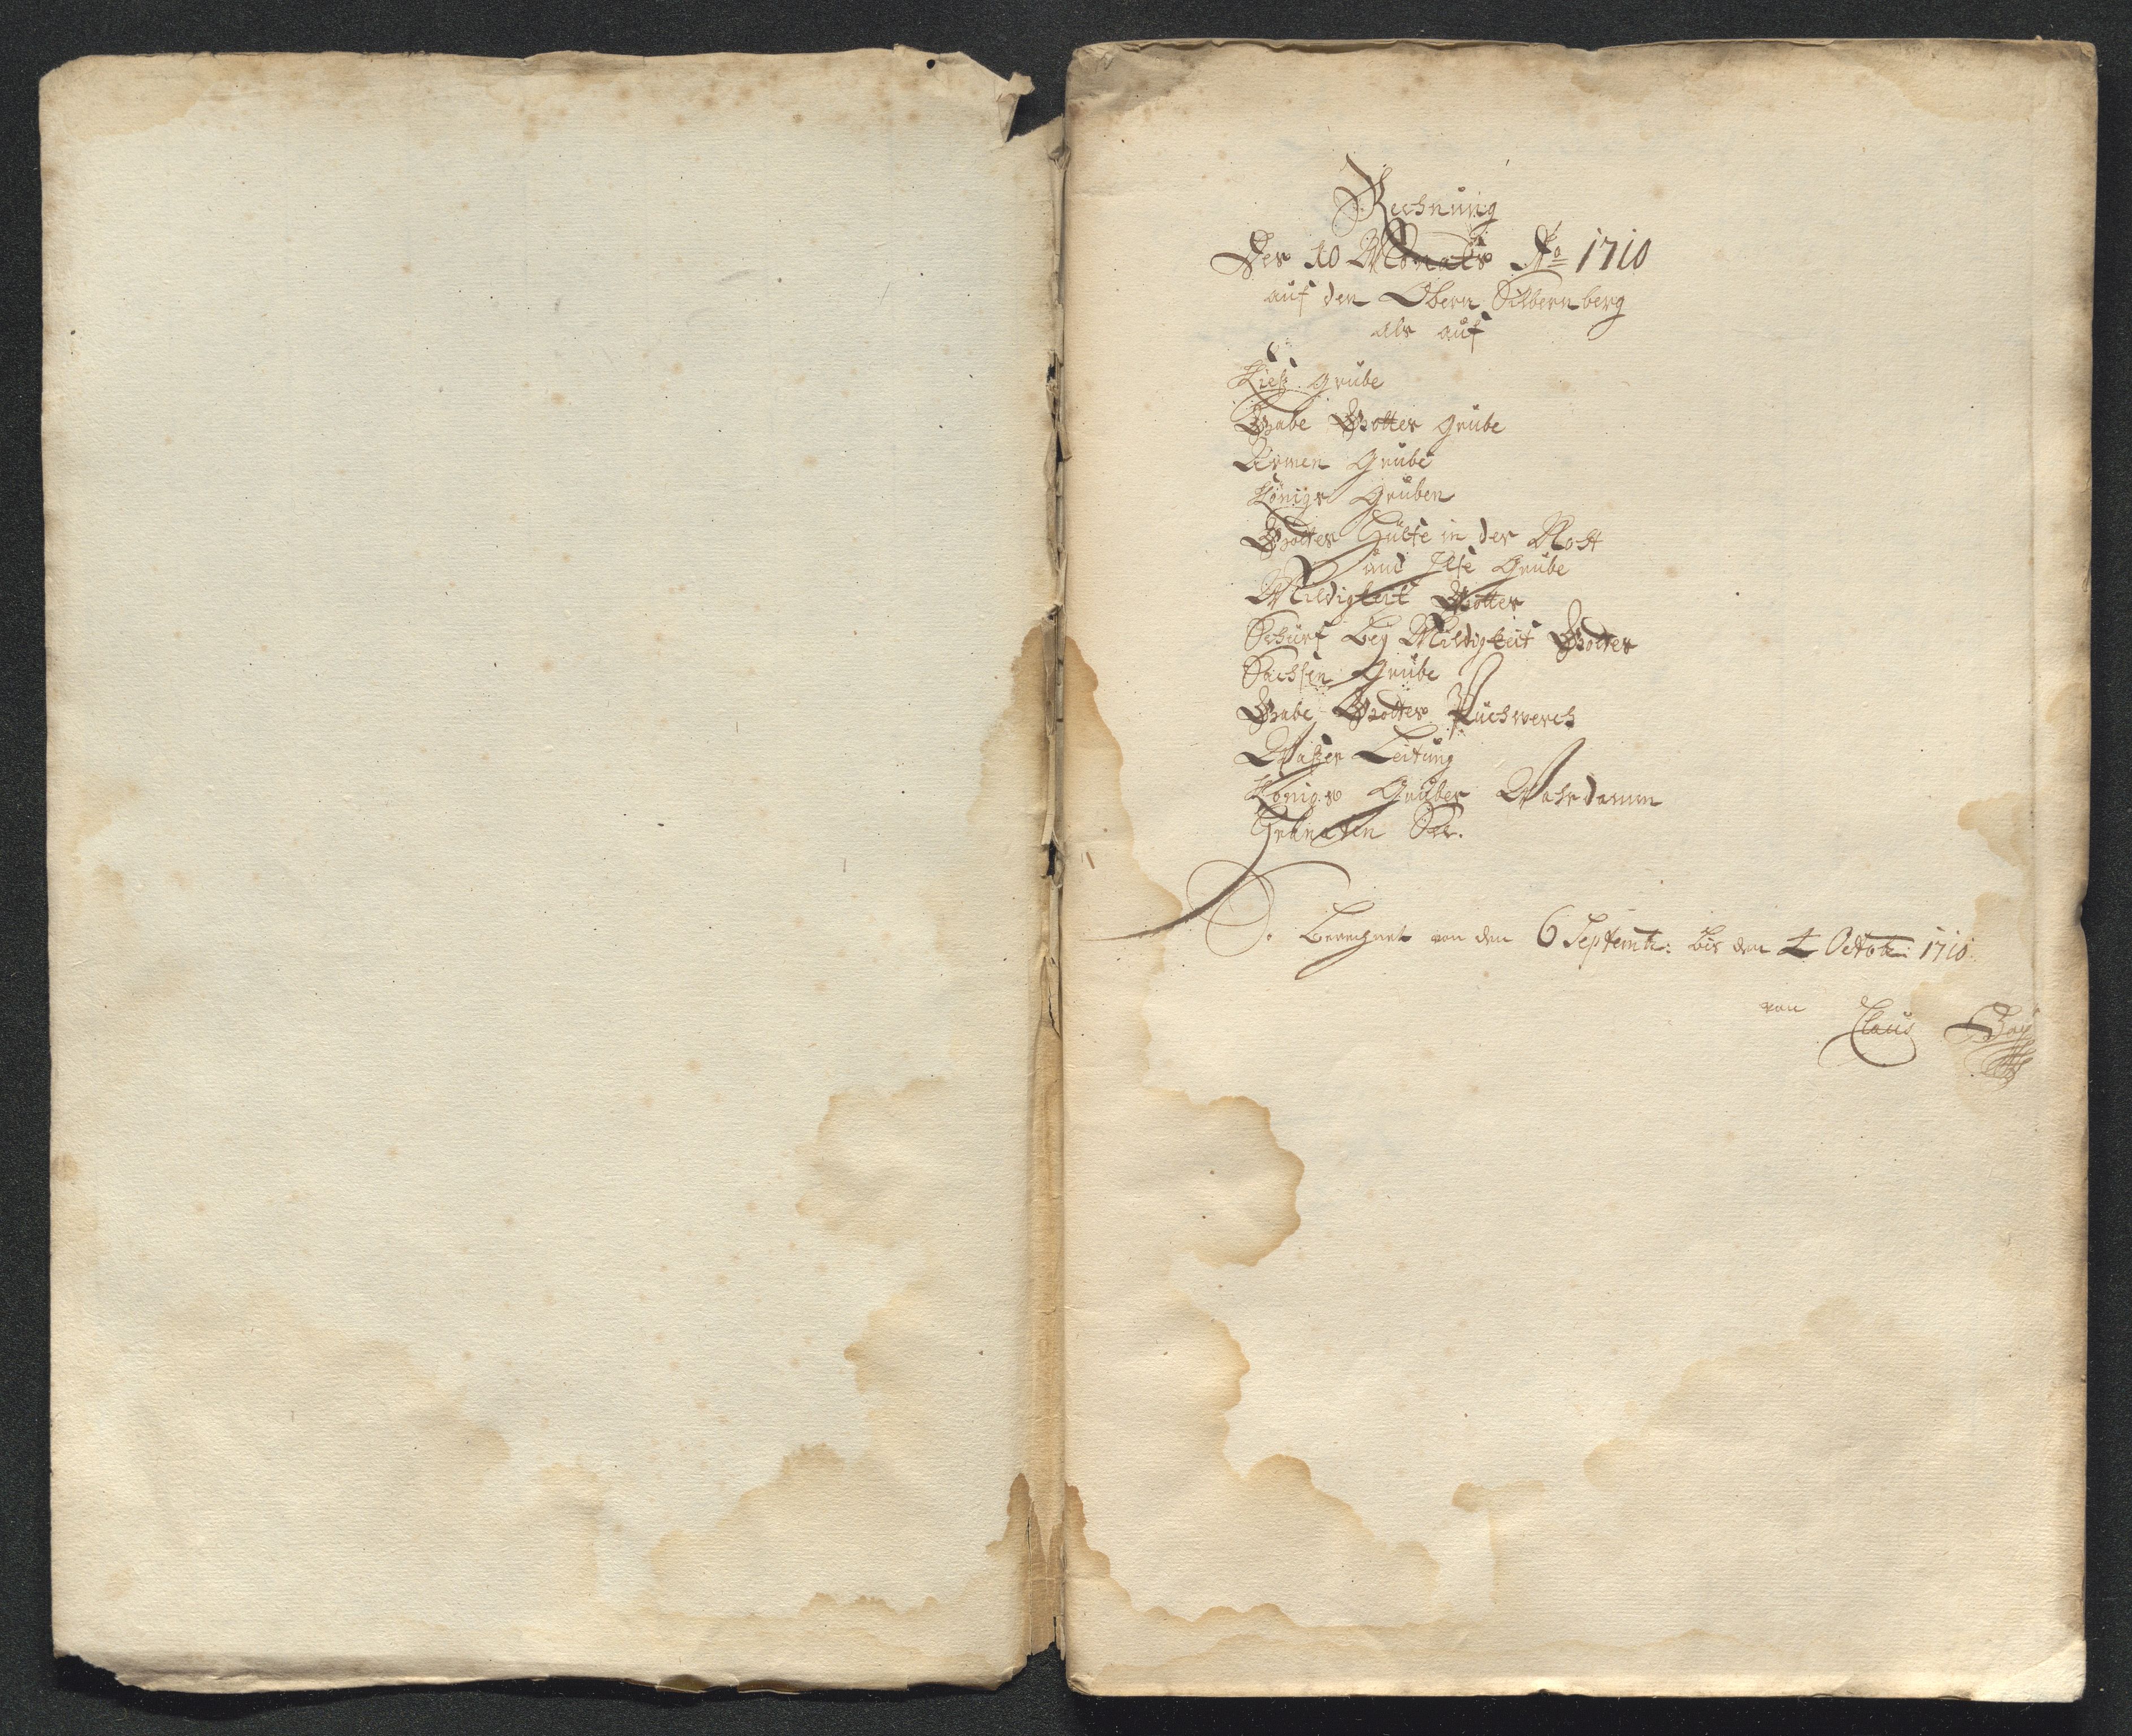 Rechnung
Des 10 Monats Ao 1710
auf den Obern Silbernberg
als auf
Kieß grube
Gabe Gottes grube
Armen Grube
Königs Gruben
Gottes Hülfe in der Noht
und Grube
Mildigkeit Gottes
Schürf bey Mildigkeit Gottes
Sachsen Grube
Gabe Gottes Puchwerch
Waßer Leitung
Königs Gruber Damm
Berechnet von den 6 Septemb: bis den 4 Octob: 1710
von Claus